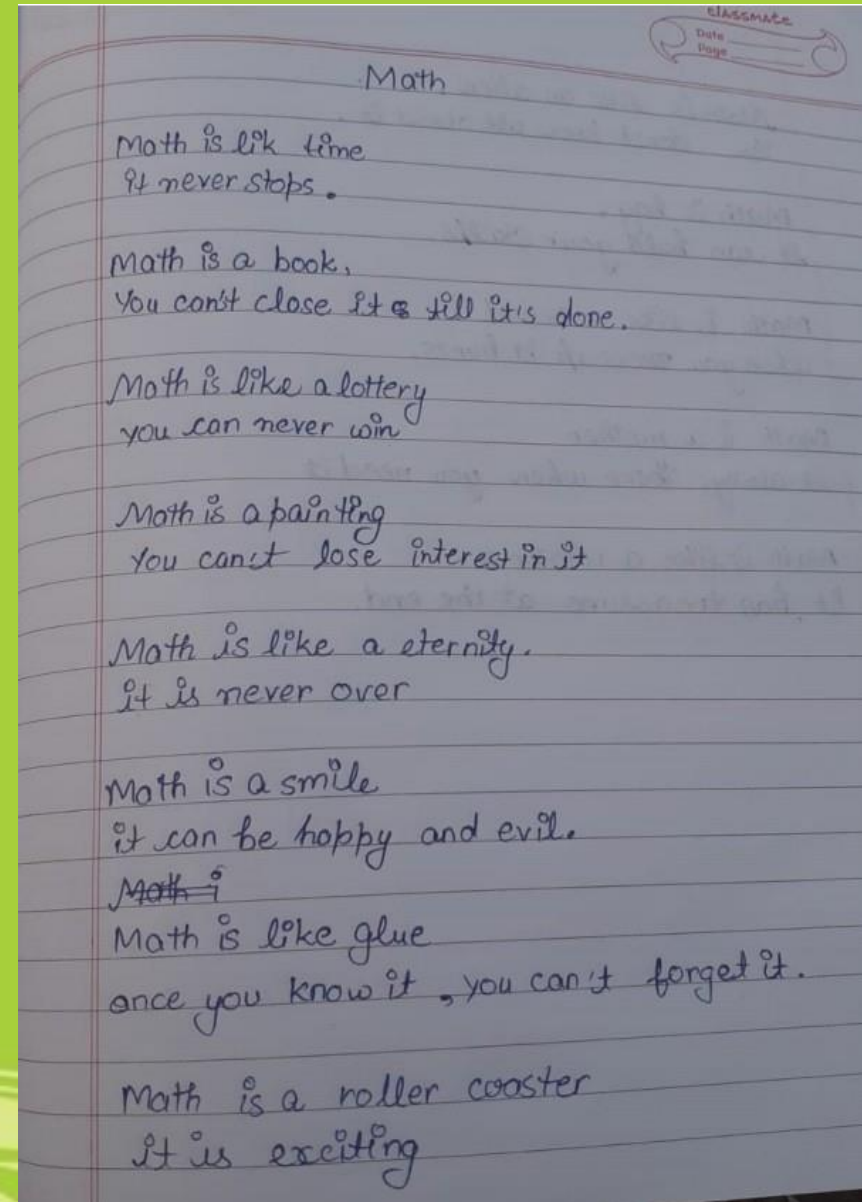 classmate
Date
Page
Math
Math is lik time
it never stops.
Math is a book,
You can't close it till it's done.
Math is like a lottery
you can never win
Math is a painting
You can't lose interest in it
Math is like a eternity.
it is never over
Math is a smile
it can be happy and evil.
Math i
Math is like glue
once you know it, you can't forget it.
Math is a roller coaster
it is exciting